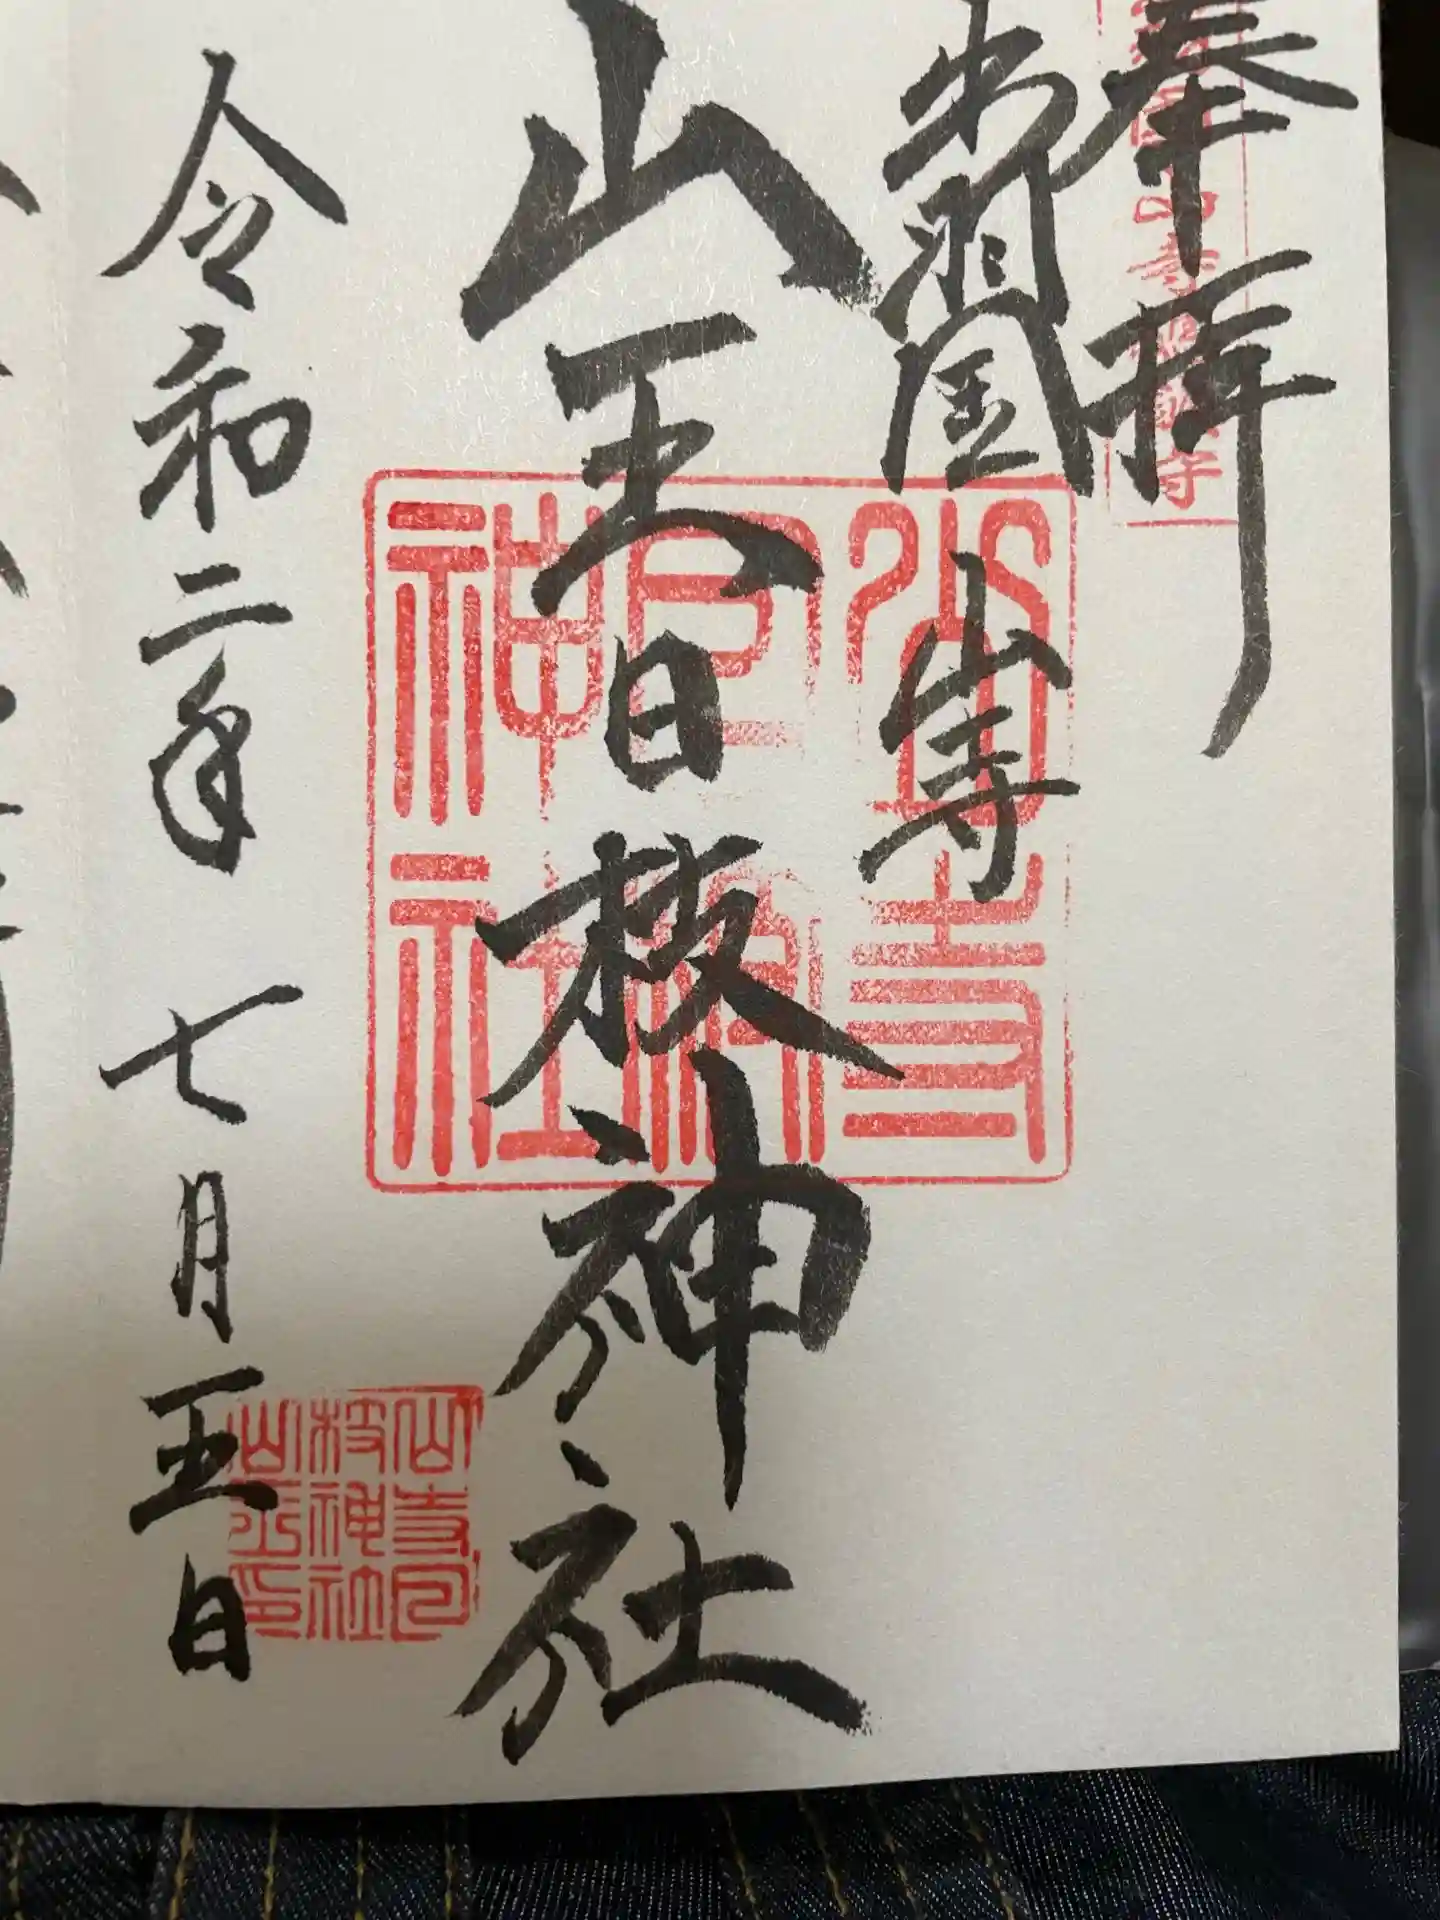 奉拝
出羽國 山寺
山王日枝神社
令和二年 七月五日
山寺日枝神社
山寺日
枝神社
山王印